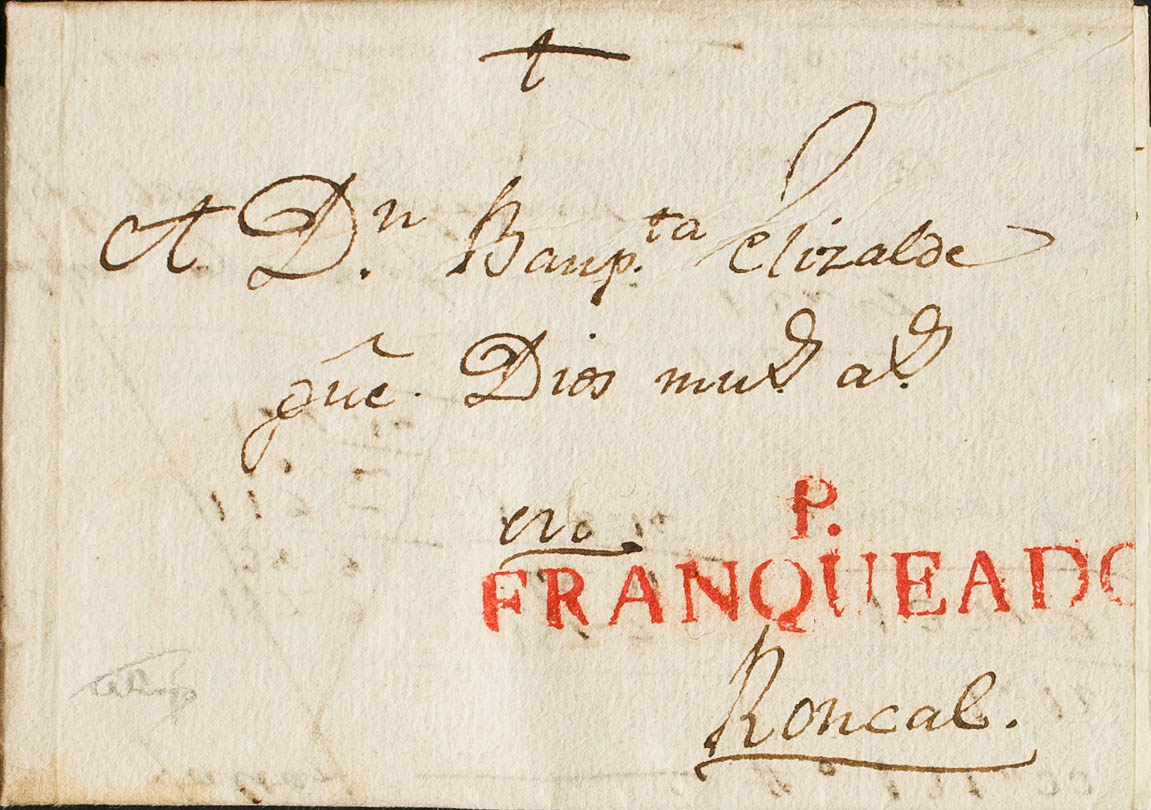 A Dn. Baup.ta Elizalde
gũe. Dios mu.s a.s
en.
P.
FRANQUEADO
Roncal.